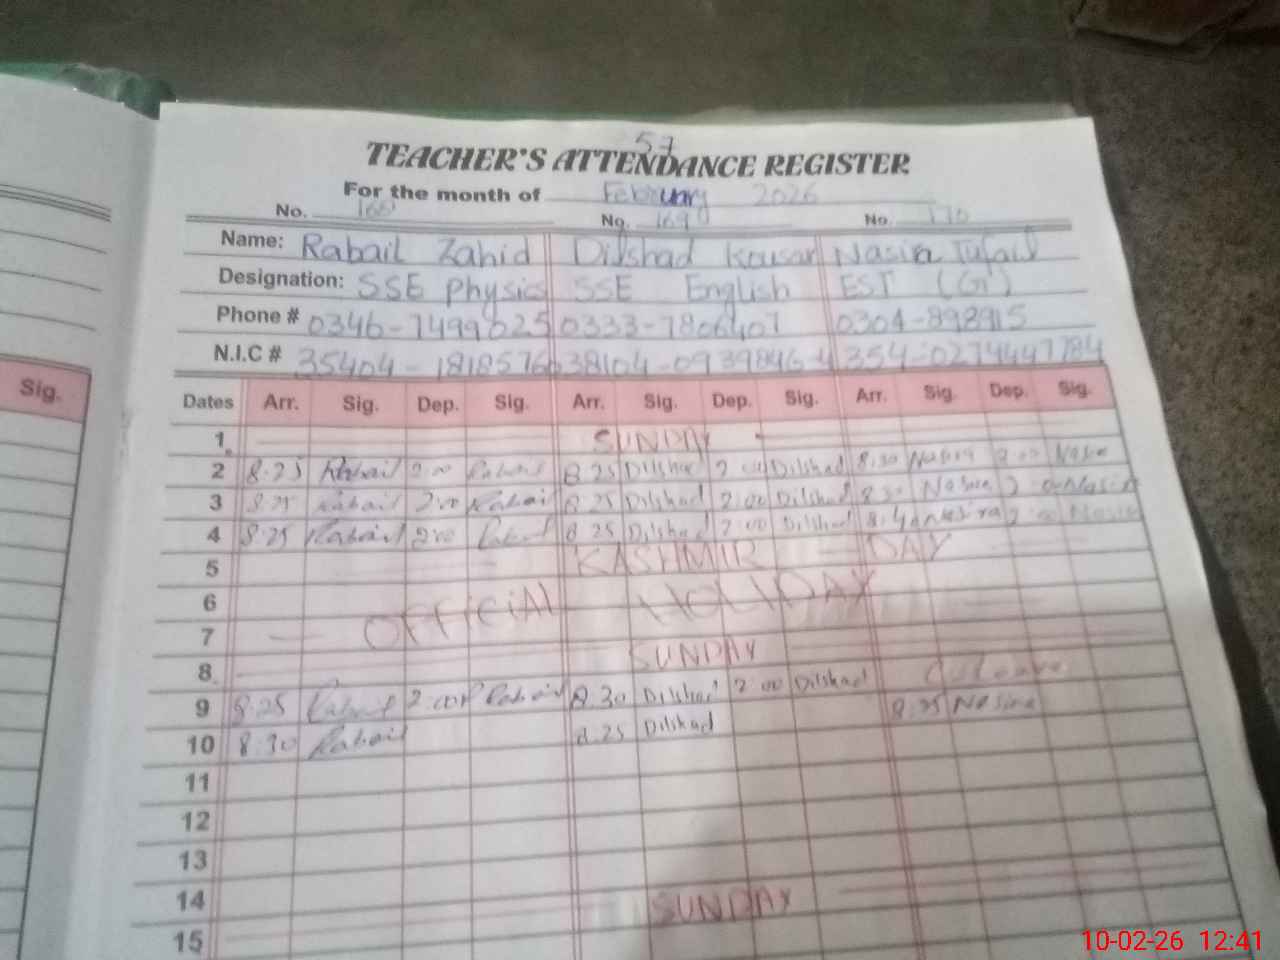 57
TEACHER'S ATTENDANCE REGISTER
For the month of February 2026
No. 166 No. 169 No. 170
Name: Rabail Zahid Dilshad Kousar Nasira Tufail
Designation: SSE Physics SSE English EST (G)
Phone # 0346-7499025 0333-7806407 0304-898915
N.I.C # 35404-1818576 38104-0939846-4 354-0274447784
Sig.
Dates Arr. Sig. Dep. Sig. Arr. Sig. Dep. Sig. Arr. Sig. Dep. Sig.
1 SUNDAY
2 8.25 Rabail 2:00 Rabail 8.25 Dilshad 2:00 Dilshad 8:30 Nasira 2:00
3 8.25 Rabail 2:00 Rabail 8.25 Dilshad 2:00 Dilshad 8:30 Nasira
4 8:25 Rabail 2:00 8.25 Dilshad 2:00 Dilshad Nasira 2:00
5 KASHMIR DAY
6 OFFICIAL HOLIDAY
7
8 SUNDAY
9 8:25 Rabail 2:00 Rabail 8.30 Dilshad 2:00 Dilshad Leave
10 8:30 Rabail 8.25 Dilshad 8.25 Nasira
11
12
13
14 SUNDAY
15
10-02-26 12:41